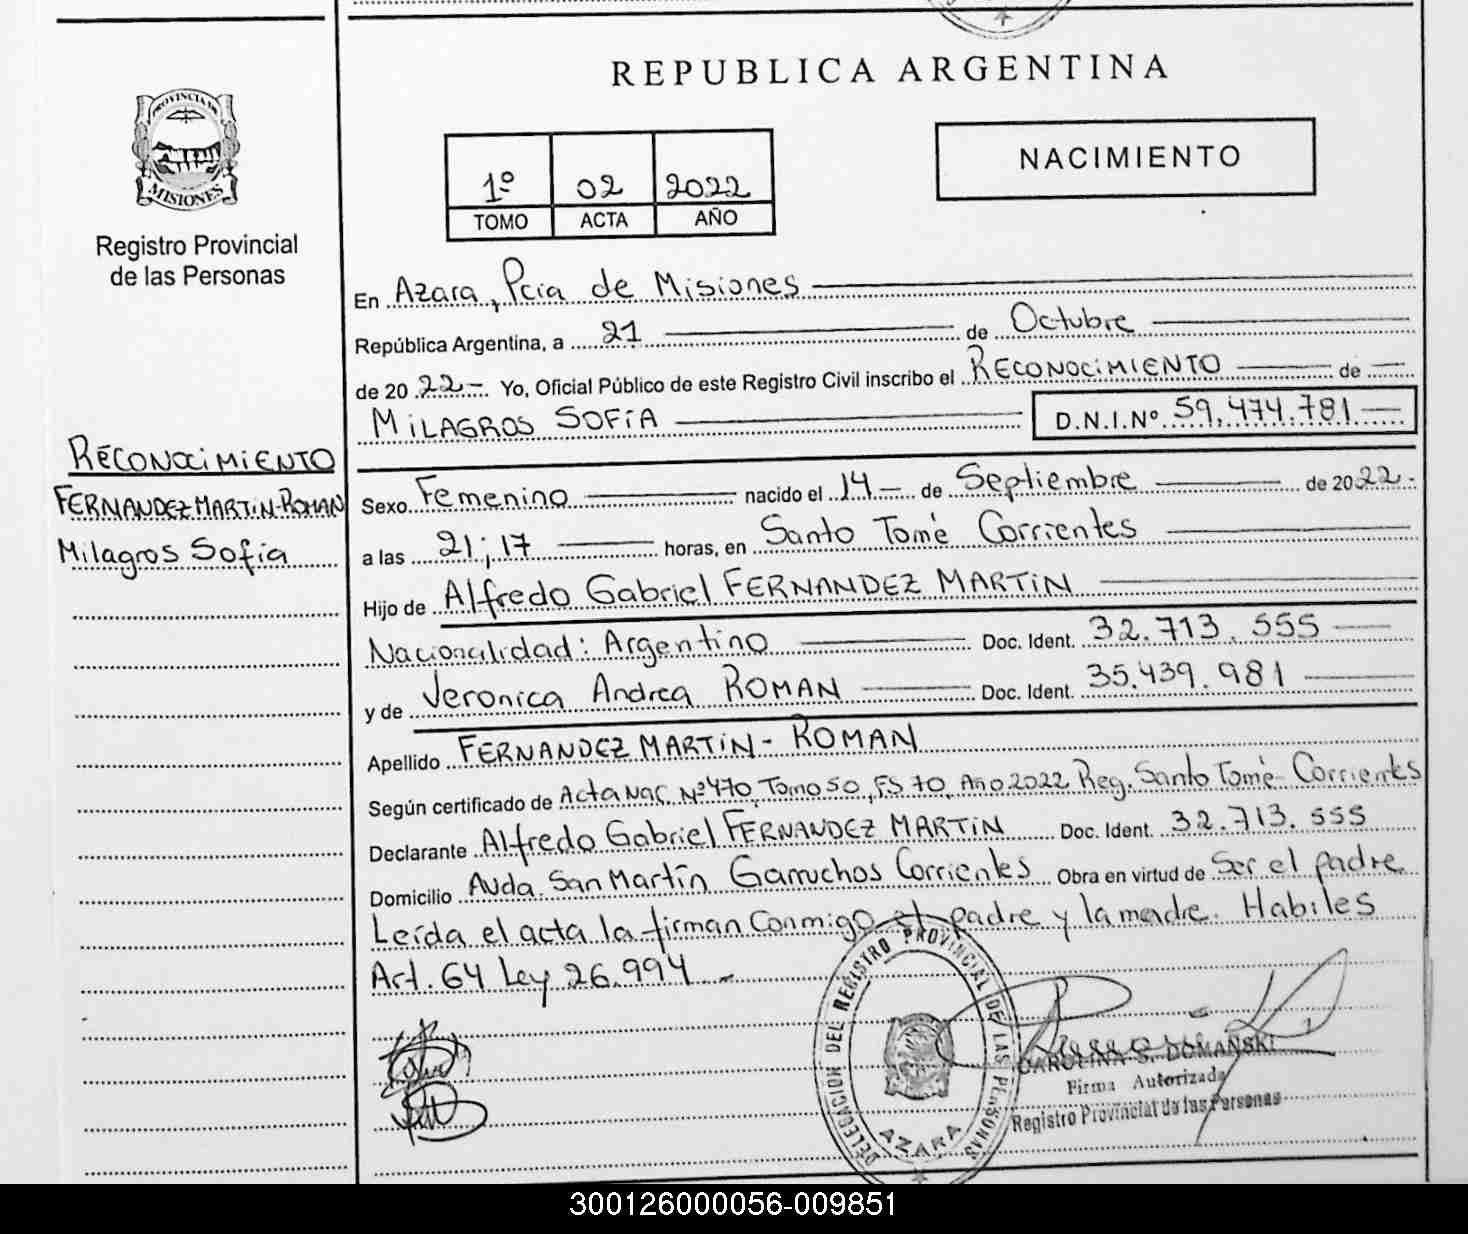 REPUBLICA ARGENTINA
PROVINCIA DE
MISIONES
Registro Provincial
de las Personas
1º 02 2022
TOMO ACTA AÑO
NACIMIENTO
En Azara, Pcia de Misiones
República Argentina, a 21 de Octubre
de 2022 - Yo, Oficial Público de este Registro Civil inscribo el RECONOCIMIENTO de
MILAGROS SOFÍA D.N.I.Nº 59.474.781
RECONOCIMIENTO
FERNANDEZ MARTIN-ROMAN
Milagros Sofía
Sexo Femenino nacido el 14 - de Septiembre de 2022 -
a las 21;17 horas, en Santo Tomé Corrientes
Hijo de Alfredo Gabriel FERNANDEZ MARTIN
Nacionalidad: Argentino Doc. Ident. 32.713.555
y de Veronica Andrea ROMAN Doc. Ident. 35.439.981
Apellido FERNANDEZ MARTIN - ROMAN
Según certificado de Acta Nac. Nº 470, Tomo 50, FS 70, Año 2022 Reg. Santo Tomé- Corrientes
Declarante Alfredo Gabriel FERNANDEZ MARTIN Doc. Ident. 32.713.555
Domicilio Avda. San Martín Garruchos Corrientes Obra en virtud de Ser el padre
Leída el acta la firman Conmigo el padre y la madre. Habiles
Art. 64 Ley 26.994 -
DELEGACION DEL REGISTRO PROVINCIAL DE LAS PERSONAS
AZARA
CAROLINA S. DOMAÑSKI
Firma Autorizada
Registro Provincial de las Personas
300126000056-009851